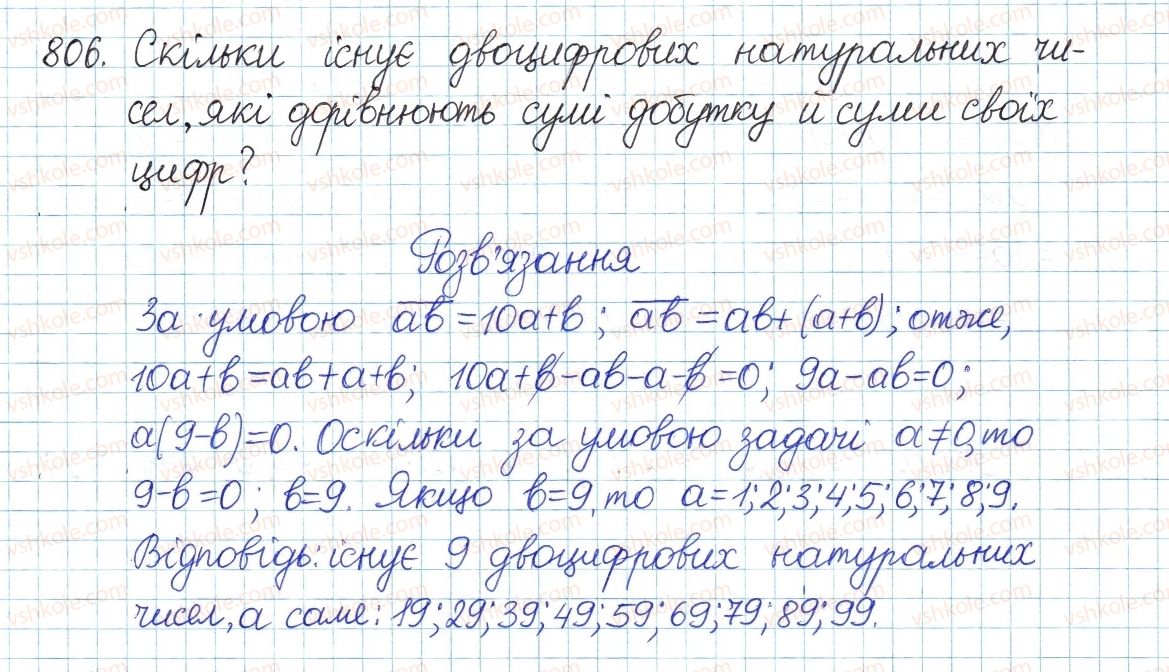 806. Скільки існує двоцифрових натуральних чи-
сел, які дорівнюють сумі добутку й суми своїх
цифр?
Розв'язання
За умовою ab = 10a+b; ab = ab+(a+b); отже,
10a+b=ab+a+b; 10a+b-ab-a-b=0; 9a-ab=0;
a(9-b)=0. Оскільки за умовою задачі a≠0, то
9-b=0; b=9. Якщо b=9, то a=1;2;3;4;5;6;7;8;9.
Відповідь: існує 9 двоцифрових натуральних
чисел, а саме: 19;29;39;49;59;69;79;89;99.